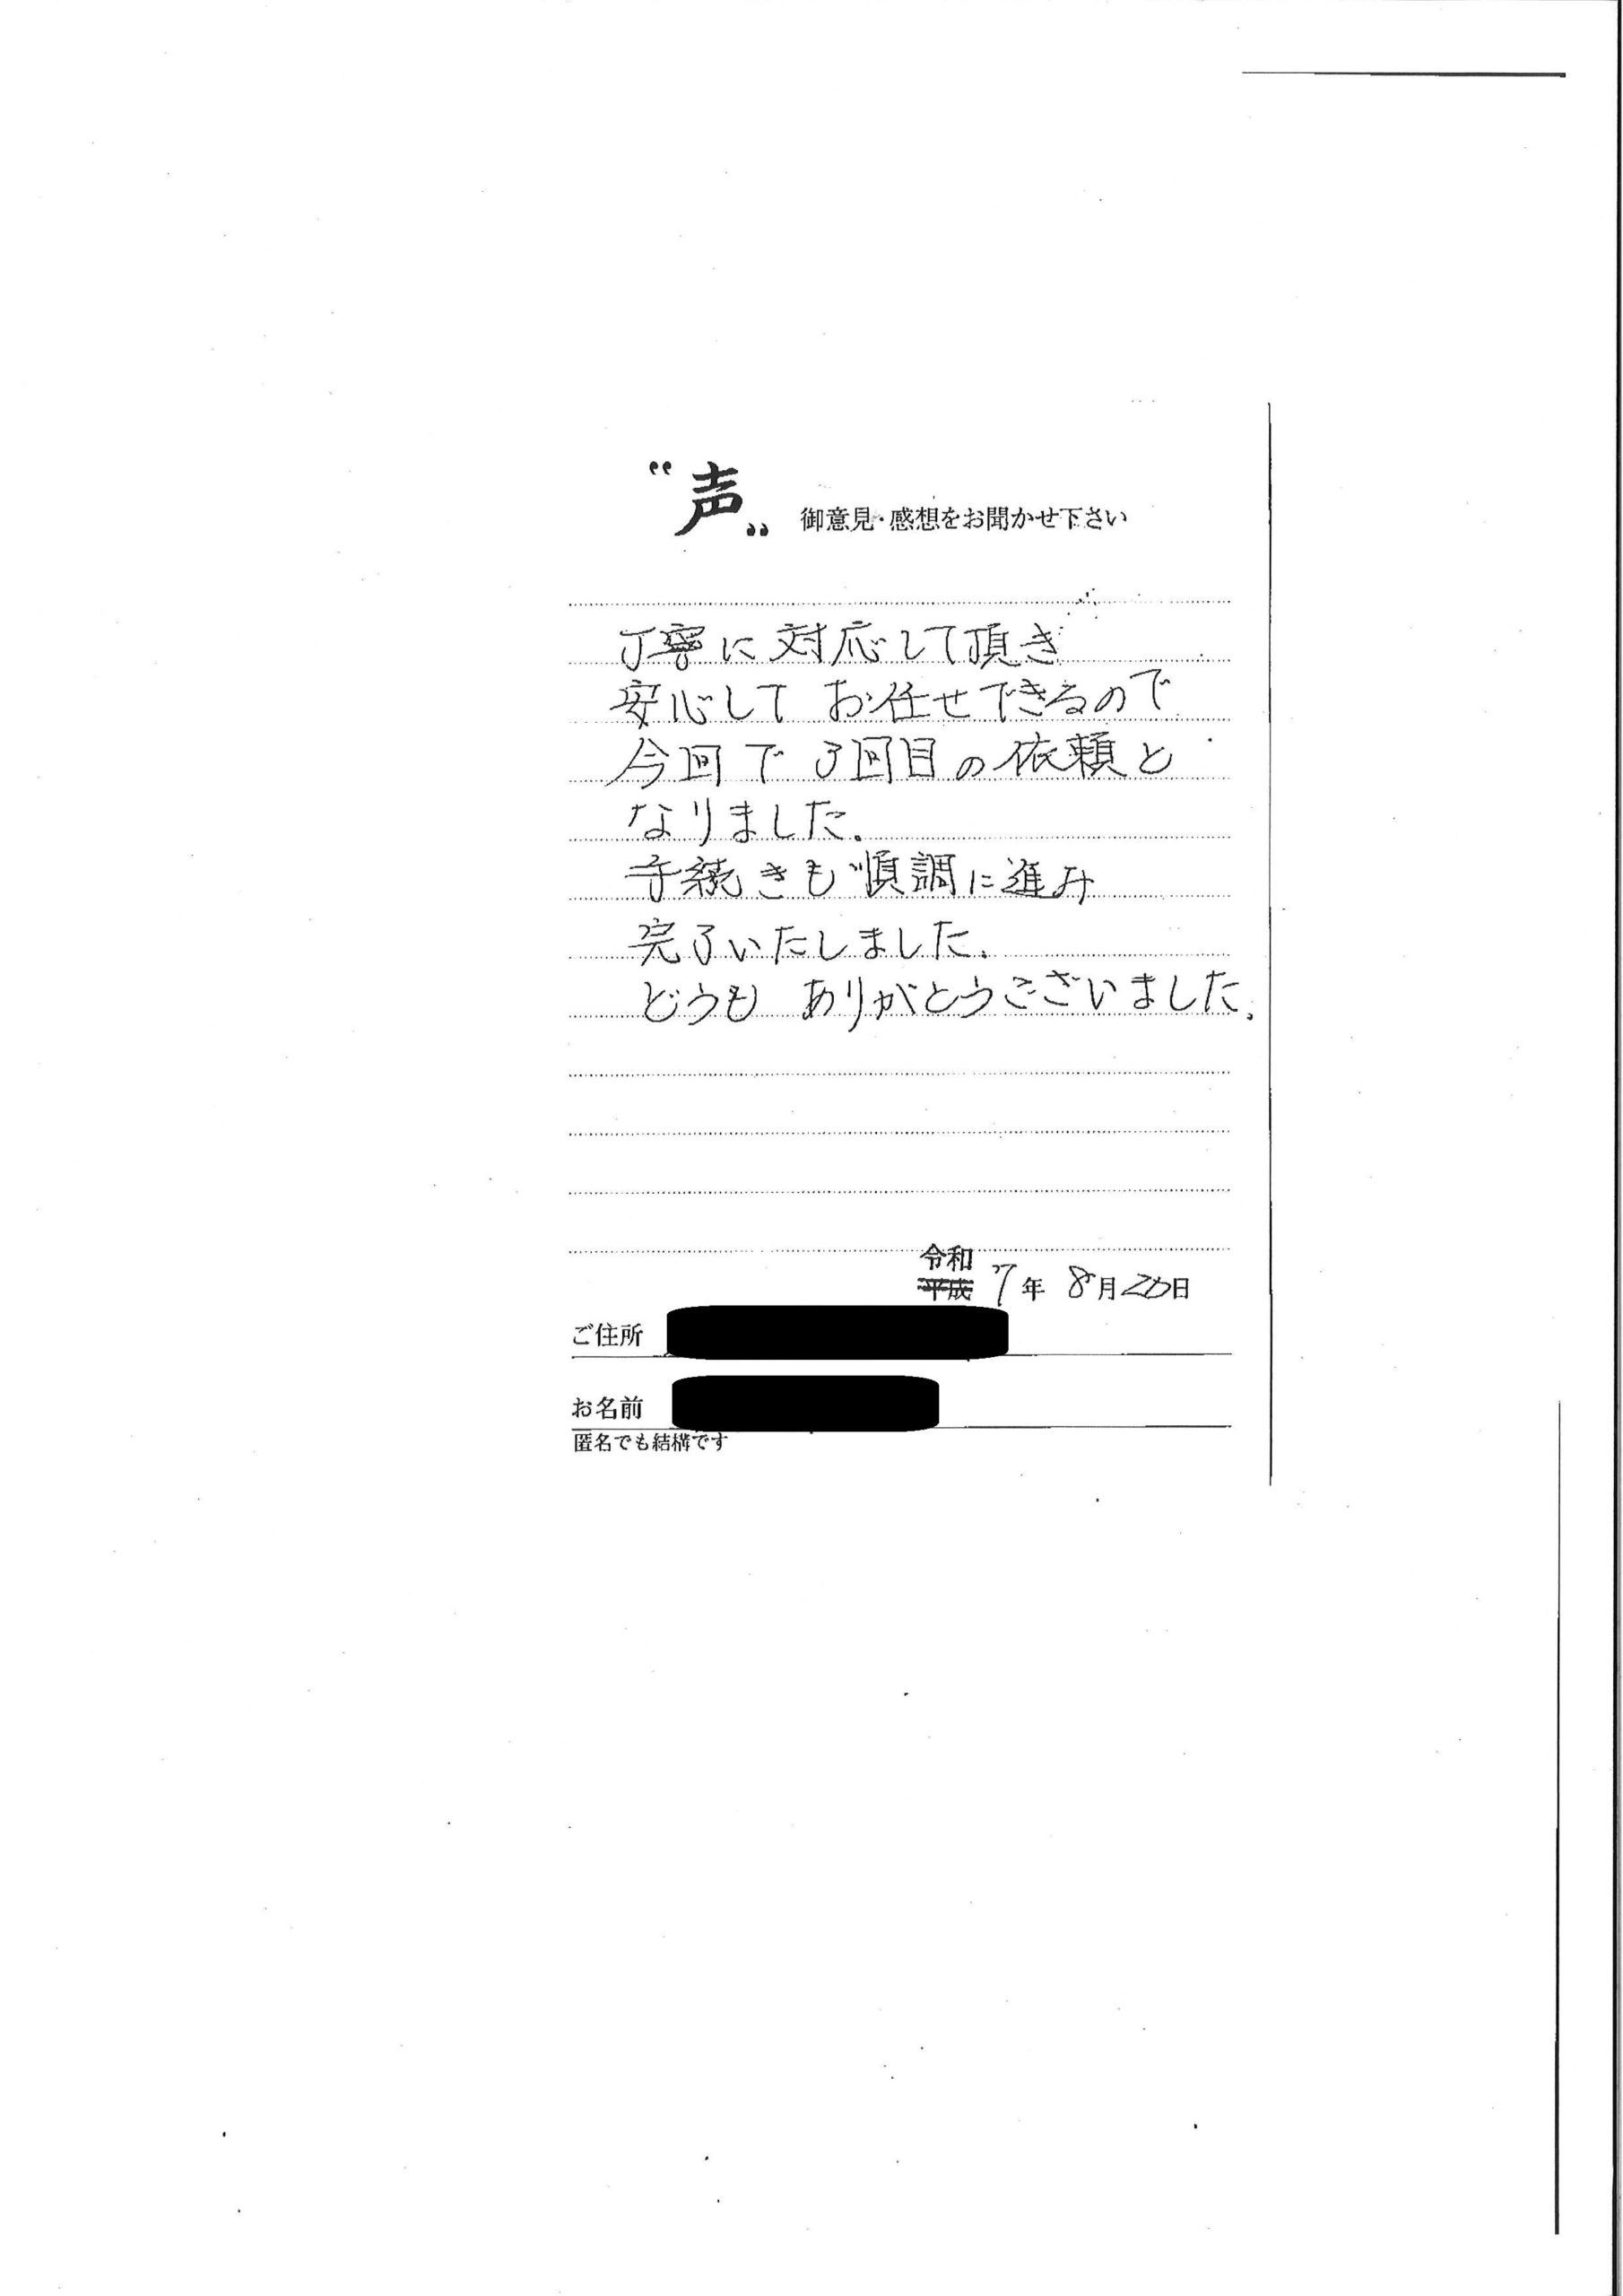 “声„ 御意見・感想をお聞かせ下さい
丁寧に対応して頂き
安心して お任せできるので
今回で 3回目の依頼と
なりました。
手続きも順調に進み
完了いたしました。
どうも ありがとうございました。
令和
平成 7年 8月20日
ご住所
お名前
匿名でも結構です